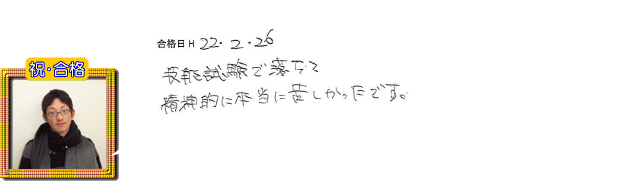 合格日 H 22・2・26
祝・合格
技能試験で落ちて
精神的に本当に苦しかったです。